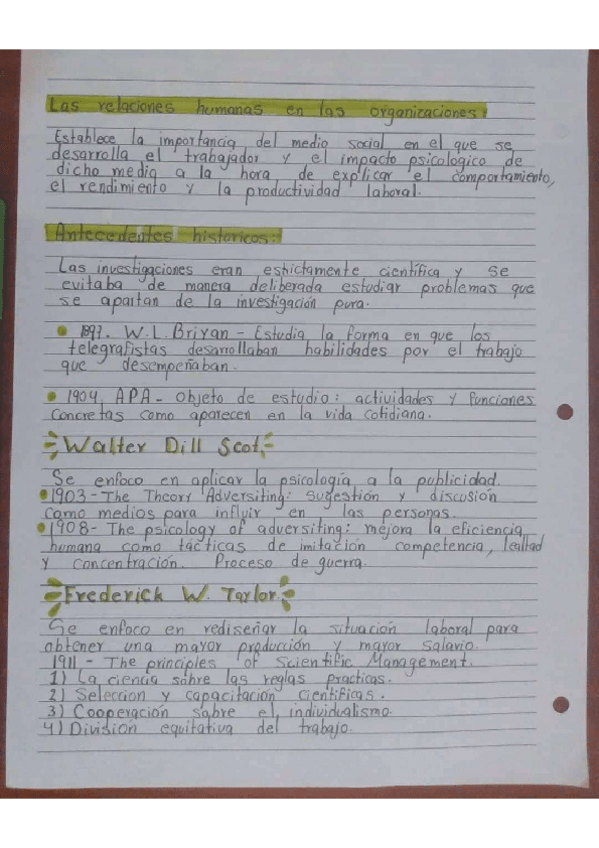 Las relaciones humanas en las organizaciones:
Establece la importancia del medio social en el que se
desarrolla el trabajador y el impacto psicologico de
dicho medio a la hora de explicar el comportamiento,
el rendimiento y la productividad laboral.
Antecedentes historicos:
Las investigaciones eran estrictamente científica y se
evitaba de manera deliberada estudiar problemas que
se apartan de la investigación pura.
• 1897. W. L. Briyan - Estudia la forma en que los
telegrafistas desarrollaban habilidades por el trabajo
que desempeñaban.
• 1904, APA - Objeto de estudio: actividades y funciones
concretas como aparecen en la vida cotidiana.
Walter Dill Scot.
Se enfoco en aplicar la psicología a la publicidad.
• 1903 - The Theory Adversiting: sugestión y discusión
como medios para influir en las personas.
• 1908 - The psicology of adversiting: mejora la eficiencia
humana como tácticas de imitación competencia, lealtad
y concentración. Proceso de guerra.
Frederick W. Taylor.
Se enfoco en rediseñar la situación laboral para
obtener una mayor producción y mayor salario.
1911 - The principles of Scientific Management.
1) La ciencia sobre las reglas practicas.
2) Seleccion y capacitación científicas.
3) Cooperación sobre el individualismo.
4) División equitativa del trabajo.